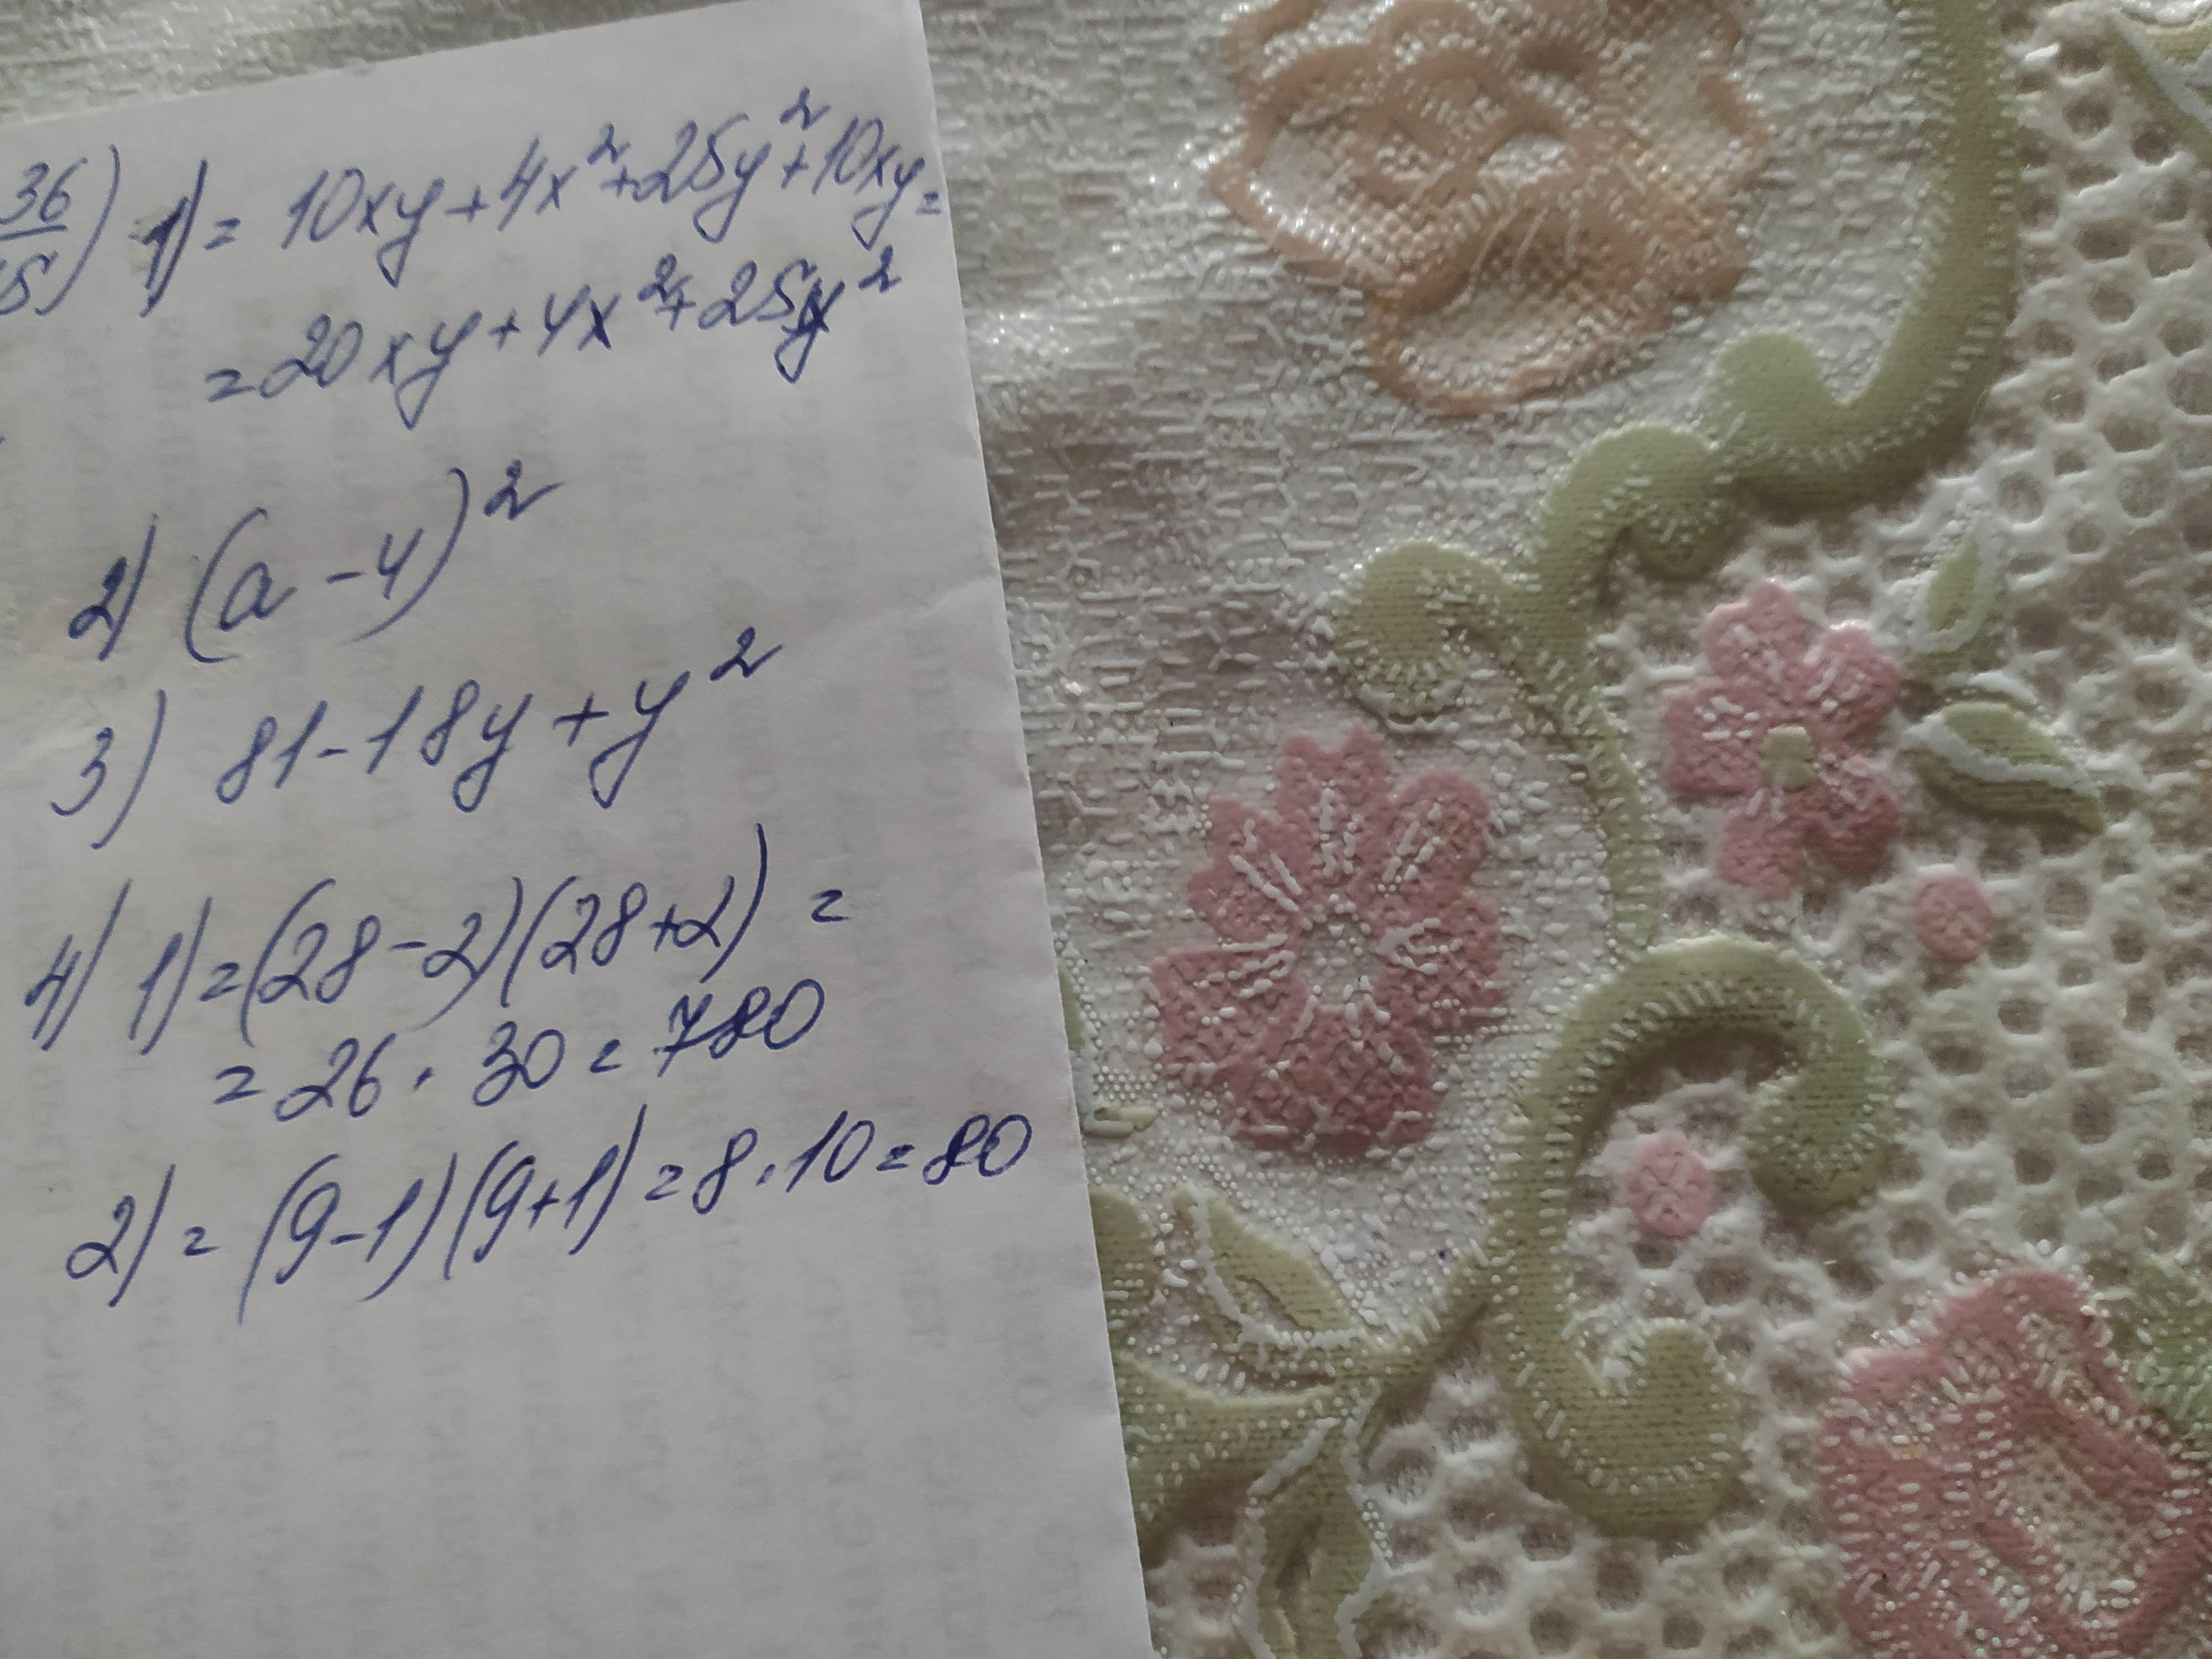 36) 1) = 10xy + 4x² + 25y² + 10xy =
= 20xy + 4x² + 25y²
2) (a - 4)²
3) 81 - 18y + y²
4) 1) = (28 - 2)(28 + 2) =
= 26 · 30 = 780
2) = (9 - 1)(9 + 1) = 8 · 10 = 80